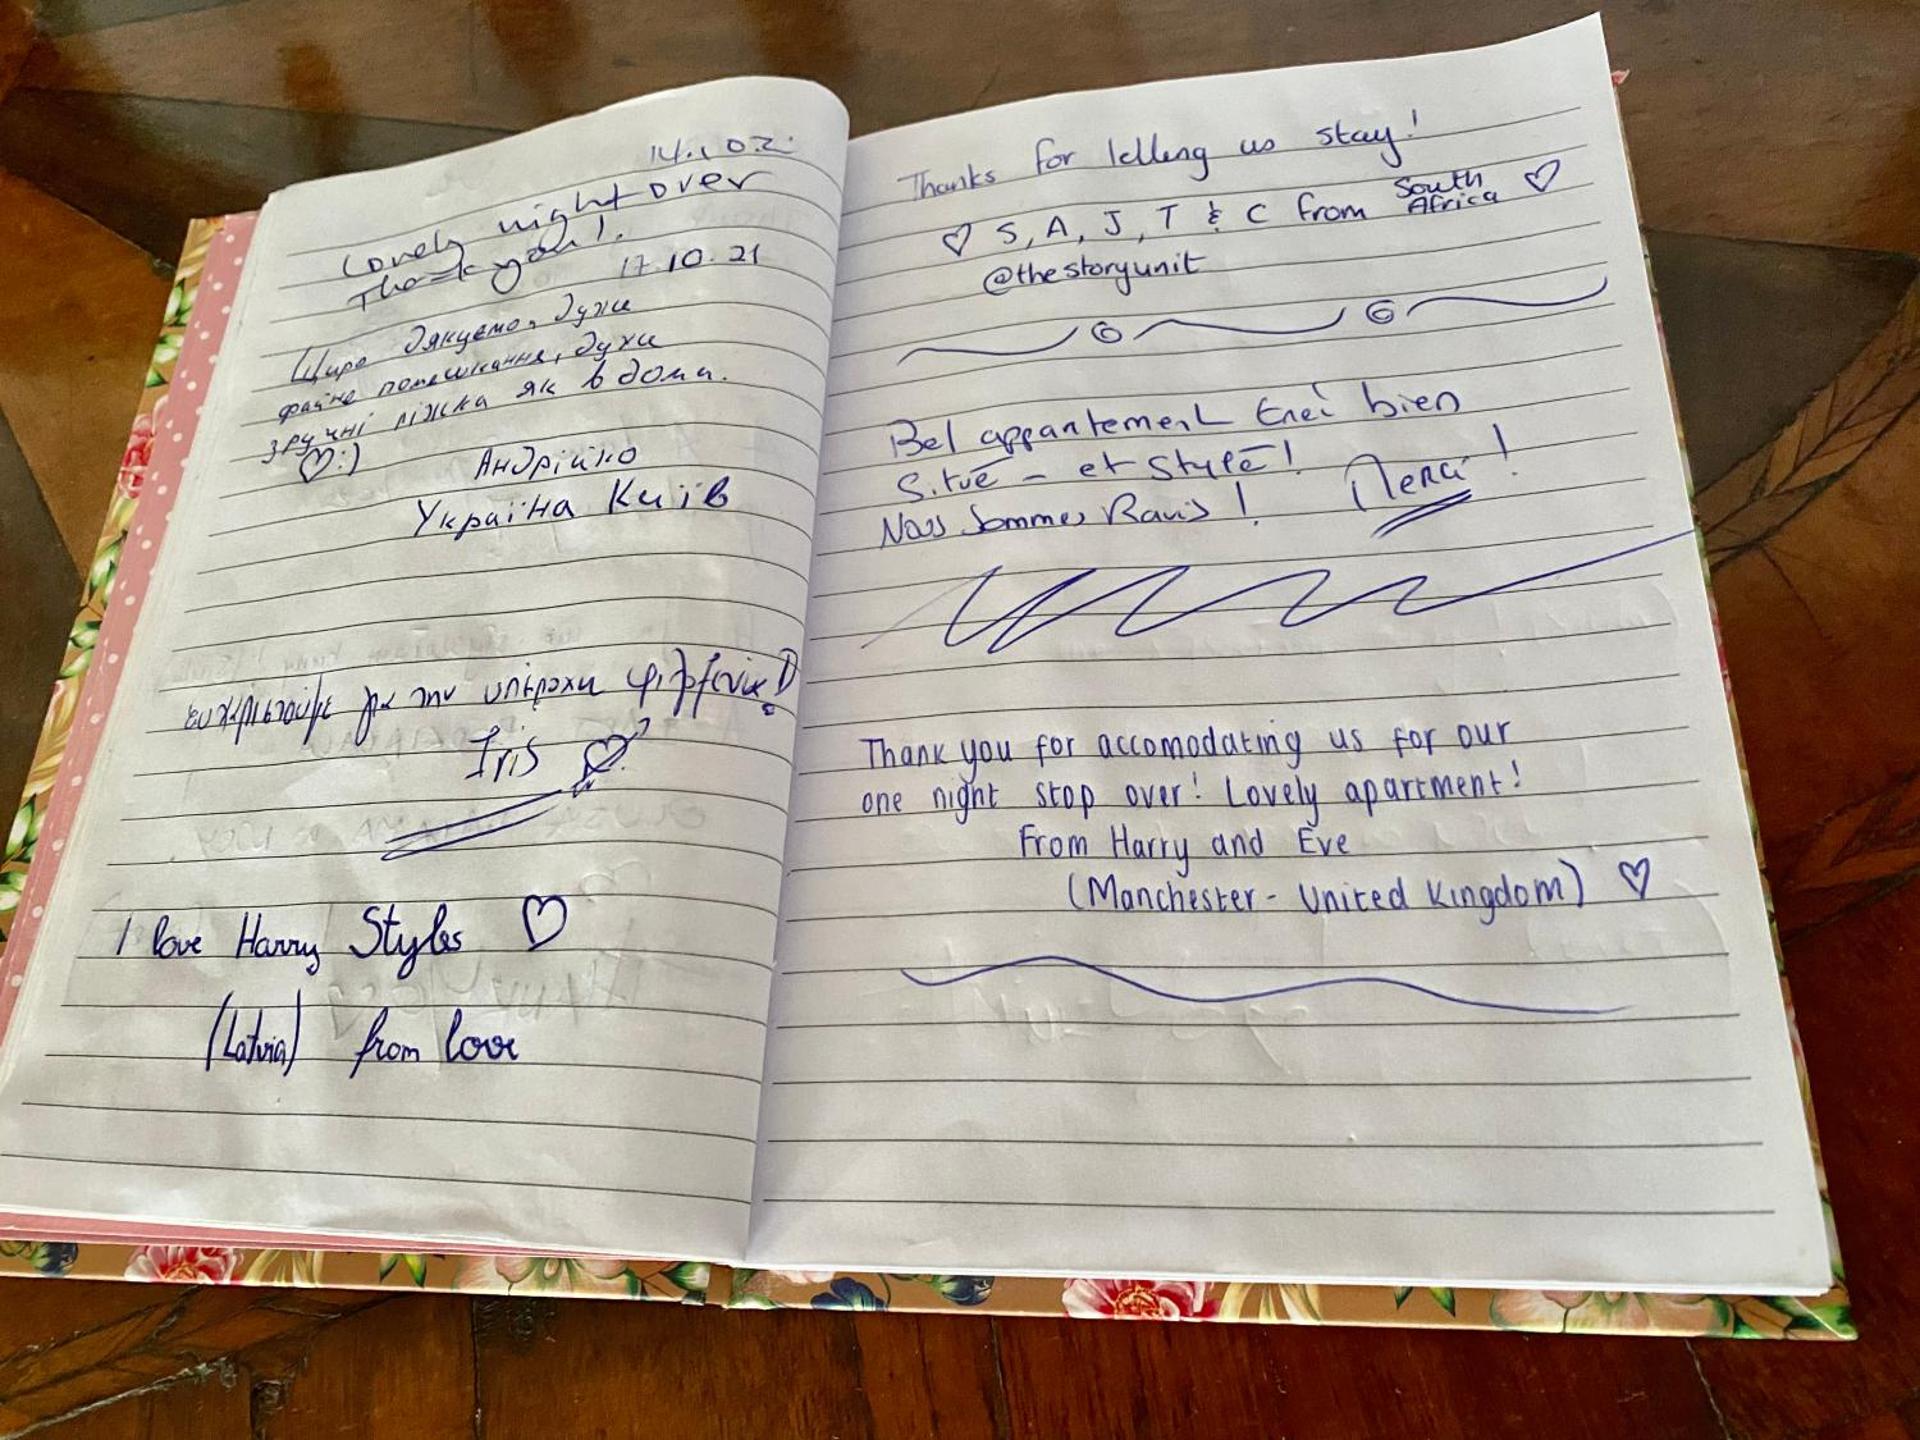 14.10.2.
Lovely night over
Thank you!.
17.10.21
Щиро дякуємо, дуже
файне помешкання, дуже
зручні ліжка як вдома.
♡:)
Андрійко
Україна Київ
ευχαριστούμε για την υπέροχη φιλοξενία!
Iris ♡
I love Harry Styles ♡
(Latvia) from love
Thanks for letting us stay!
♡ S, A, J, T & C from South Africa ♡
@thestoryunit
Bel appartement très bien
Situé - et Stylé!
Nous Sommes Ravis! Merci!
Thank you for accomodating us for our
one night stop over! Lovely apartment!
From Harry and Eve
(Manchester - United Kingdom) ♡